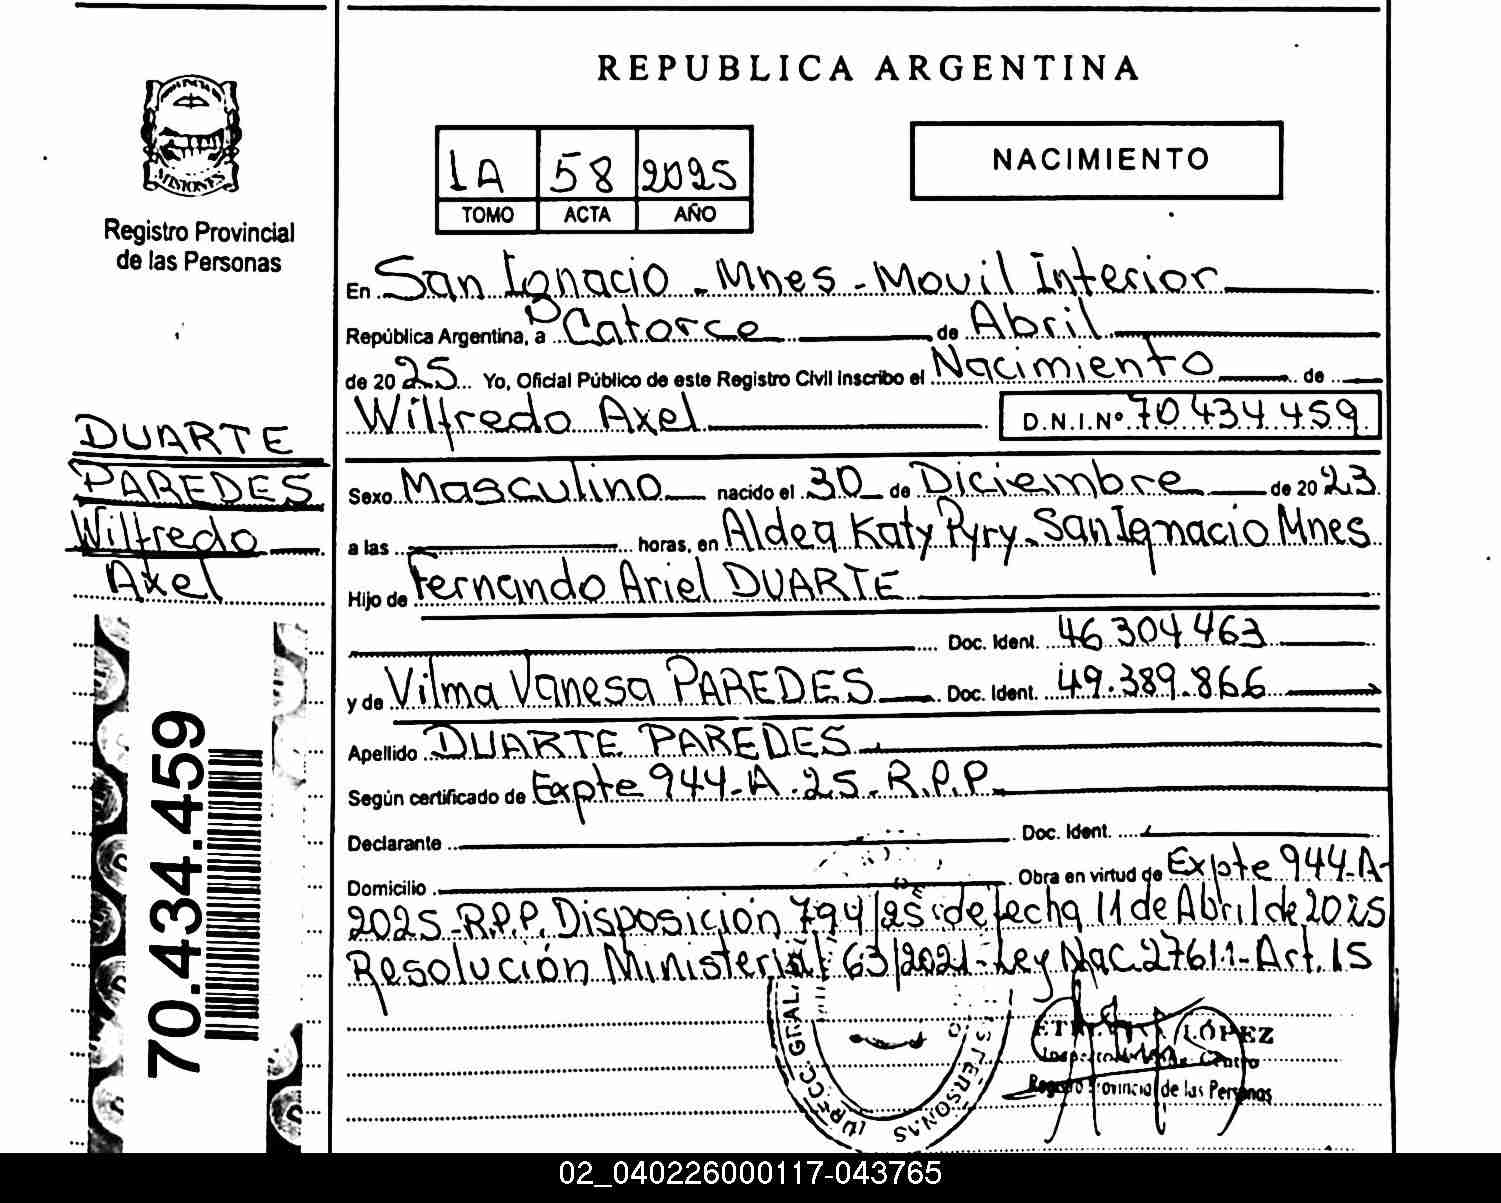 REPUBLICA ARGENTINA
MISIONES
Registro Provincial
de las Personas
1A 58 2025
TOMO ACTA AÑO
NACIMIENTO
En San Ignacio - Mnes - Movil Interior
República Argentina, a Catorce de Abril
de 2025 Yo, Oficial Público de este Registro Civil inscribo el Nacimiento de
Wilfredo Axel D.N.I.Nº 70.434.459
DUARTE
PAREDES
Wilfredo
Axel
Sexo Masculino nacido el 30 de Diciembre de 2023
a las horas, en Aldea Katy Pyry - San Ignacio Mnes
Hijo de Fernando Ariel DUARTE
Doc. Ident. 46.304.463
y de Vilma Vanesa PAREDES Doc. Ident. 49.389.866
Apellido DUARTE PAREDES
Según certificado de Expte 944-A-25-R.P.P
Declarante Doc. Ident.
Domicilio Obra en virtud de Expte 944-A-
2025-R.P.P. Disposición 794/25 de fecha 11 de Abril de 2025
Resolución Ministerial 63/2021-Ley Nac.27611-Art.15
70.434.459
GRAL.
PERSONAS
LÓPEZ
Registro Provincial de las Personas
02_040226000117-043765